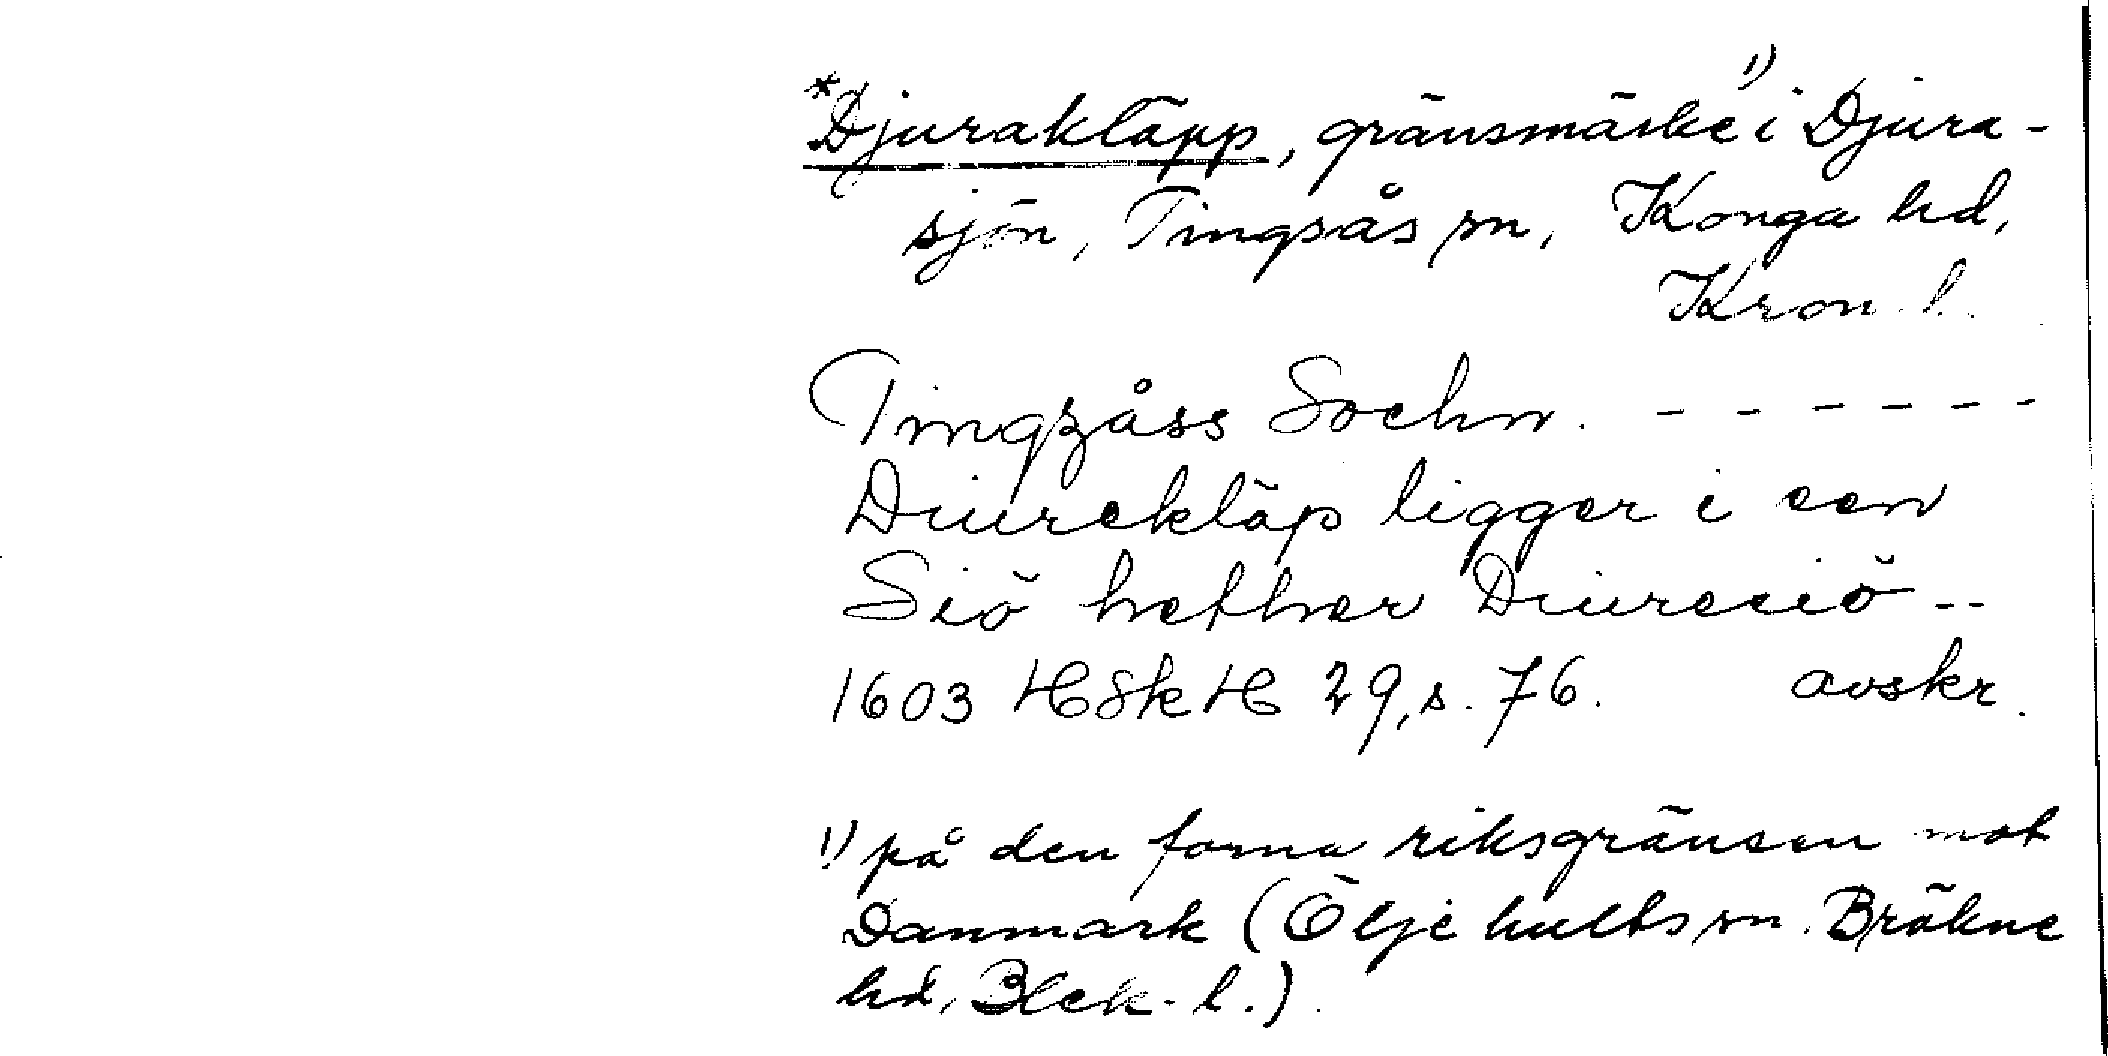 *Djurakläpp, gränsmärke ¹⁾ i Djura-
sjön, Tingsås sn, Konga hd,
Kron. l.
Tingzåss Sochn. - - - - - -
Diurekläp ligger i een
Siö hether Diuresiö --
1603 HSkH 29, s. 76. avskr.
¹⁾ på den forna riksgränsen mot
Danmark (Öljehults sn. Bräkne
hd, Blek. l.).